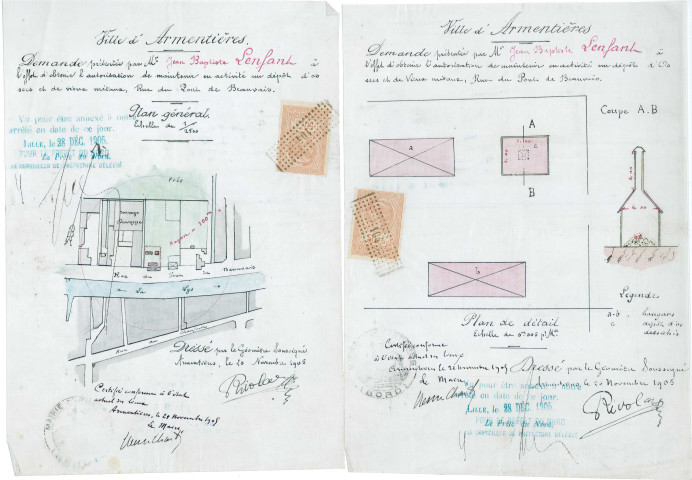 Ville d'Armentières.
Demande présentée par Mr Jean Baptiste Lenfant à
l'effet d'obtenir l'autorisation de maintenir en activité un dépôt d'os
secs et de vieux métaux, Rue du Pont de Beauvais.
Plan général
Echelle de 1/2500
Vu pour être annexé à notre
arrêté en date de ce jour.
LILLE, le 28 DEC. 1905
Le Préfet du Nord,
Pré
Rayon = 100m
Rue du Pont de Beauvais
La Lys
Dressé par le Géomètre Soussigné
Armentières, le 20 Novembre 1905
Certifié conforme à l'état
actuel des lieux
Armentières, le 28 novembre 1905
Le Maire,
Ville d'Armentières.
Demande présentée par Mr Jean Baptiste Lenfant à
l'effet d'obtenir l'autorisation de maintenir en activité un dépôt d'Os
secs et de Vieux métaux, Rue du Pont de Beauvais.
Coupe A.B
A
a
c
B
b
Légende
a-b hangars
c dépôt d'os
Plan de détail
Echelle de 0m005 p. M.
Certifié conforme
à l'état actuel des lieux
Armentières le 28 novembre 1905
Le Maire
Dressé par le Géomètre Soussigné
Armentières, le 20 Novembre 1905
Vu pour être annexé à notre
arrêté en date de ce jour.
LILLE, le 28 DEC. 1905
Le Préfet du Nord,